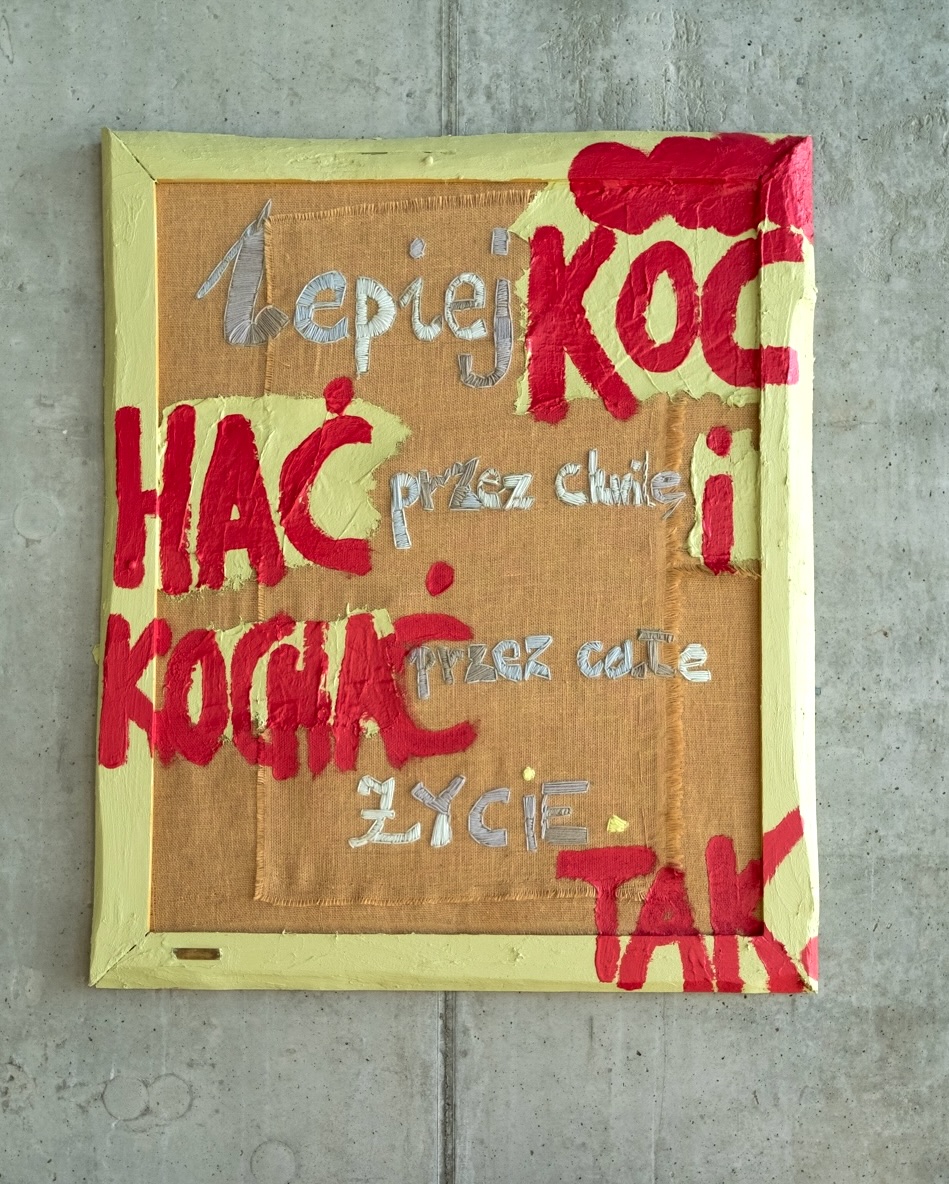 lepiej KOC
HAĆ przez chwilę i
KOCHAĆ przez całe
ŻYCiE.
TAK